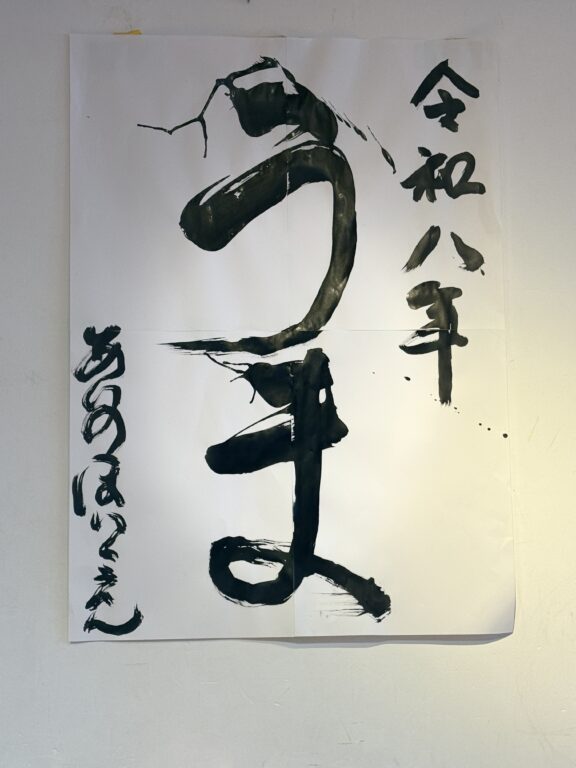 令和八年
うま
あのほいくえん